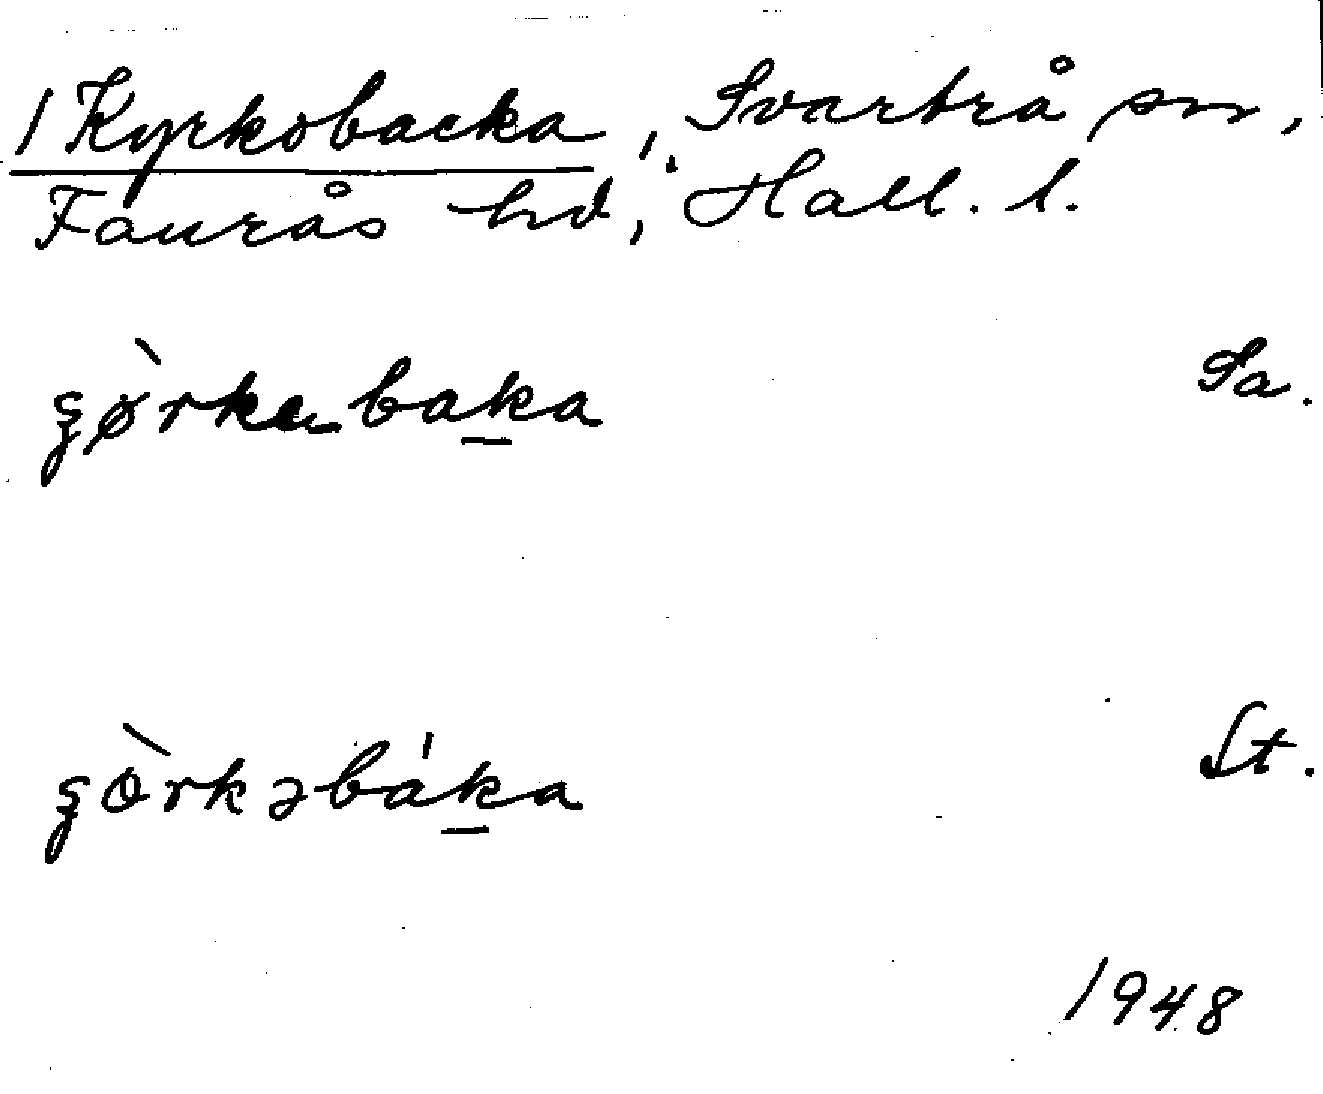 1 Kyrkobacka, Svartrå sn,
Faurås hd, Hall. l.
Sa.
St.
1948